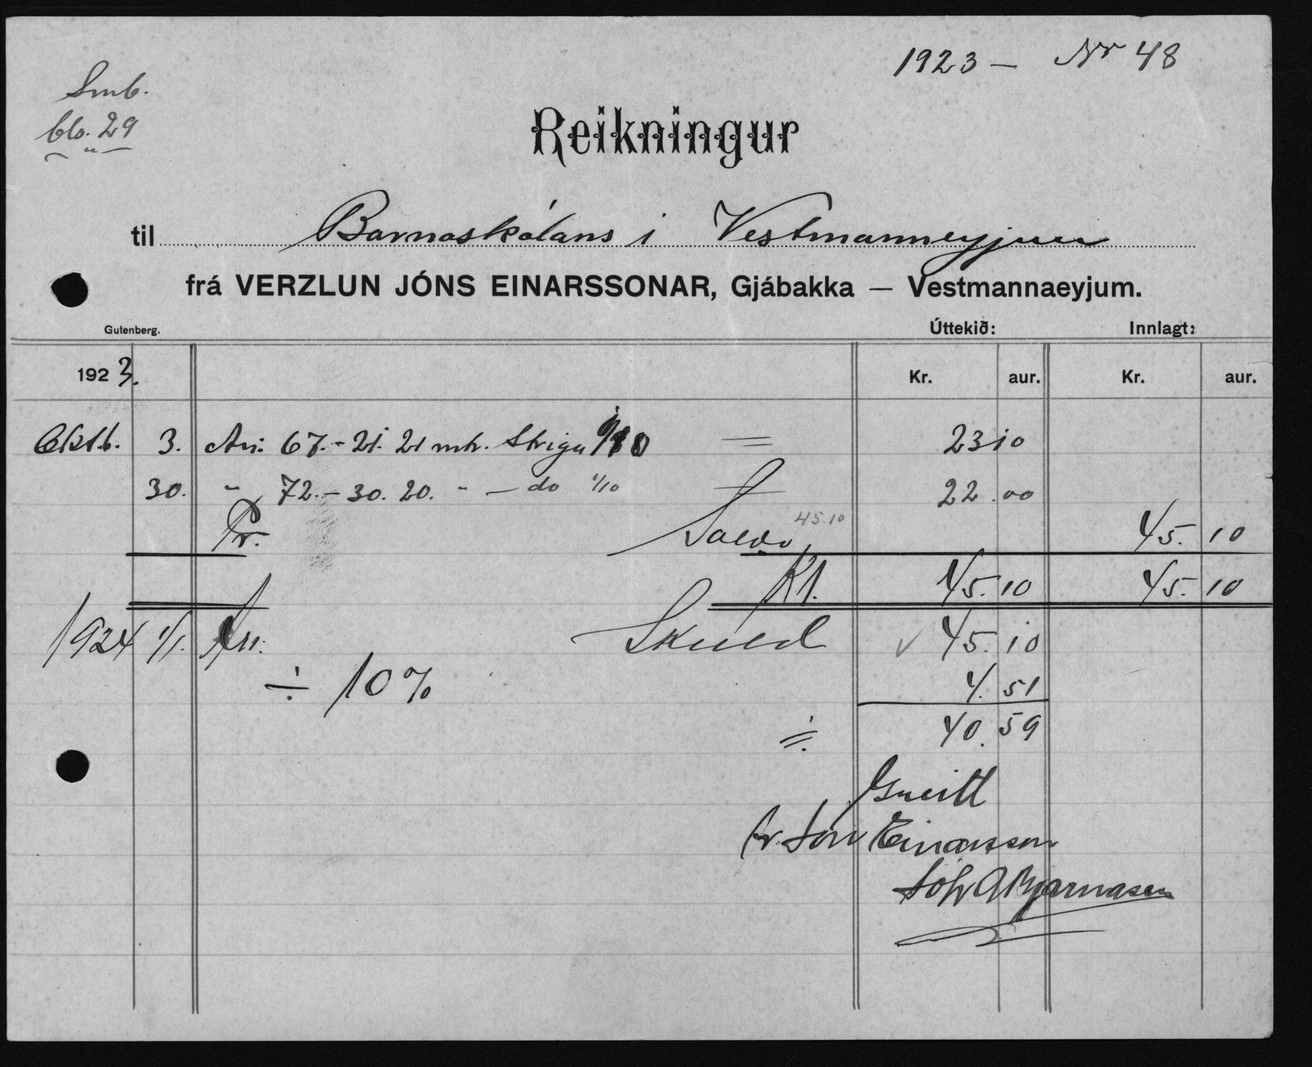 1923 – Nr 48
Smb.
bls. 29
Reikningur
til Barnaskólans í Vestmanneyjum
frá VERZLUN JÓNS EINARSSONAR, Gjábakka — Vestmannaeyjum.
Gutenberg. Úttekið: Innlagt:
1923. Kr. aur. Kr. aur.
Oktb. 3. An: 67.- 21. 21 mtr. Striga 1/10 = 23 10
30. " 72.- 30. 20. " - do 1/10 = 22.00
Pr. Saldo 45.10 45.10
Kr. 45.10 45.10
1924 1/1. An: Skuld 45.10
÷ 10% 4.51
40.59
Greitt
pr. Jón Einarsson
Jóh A Bjarnasen